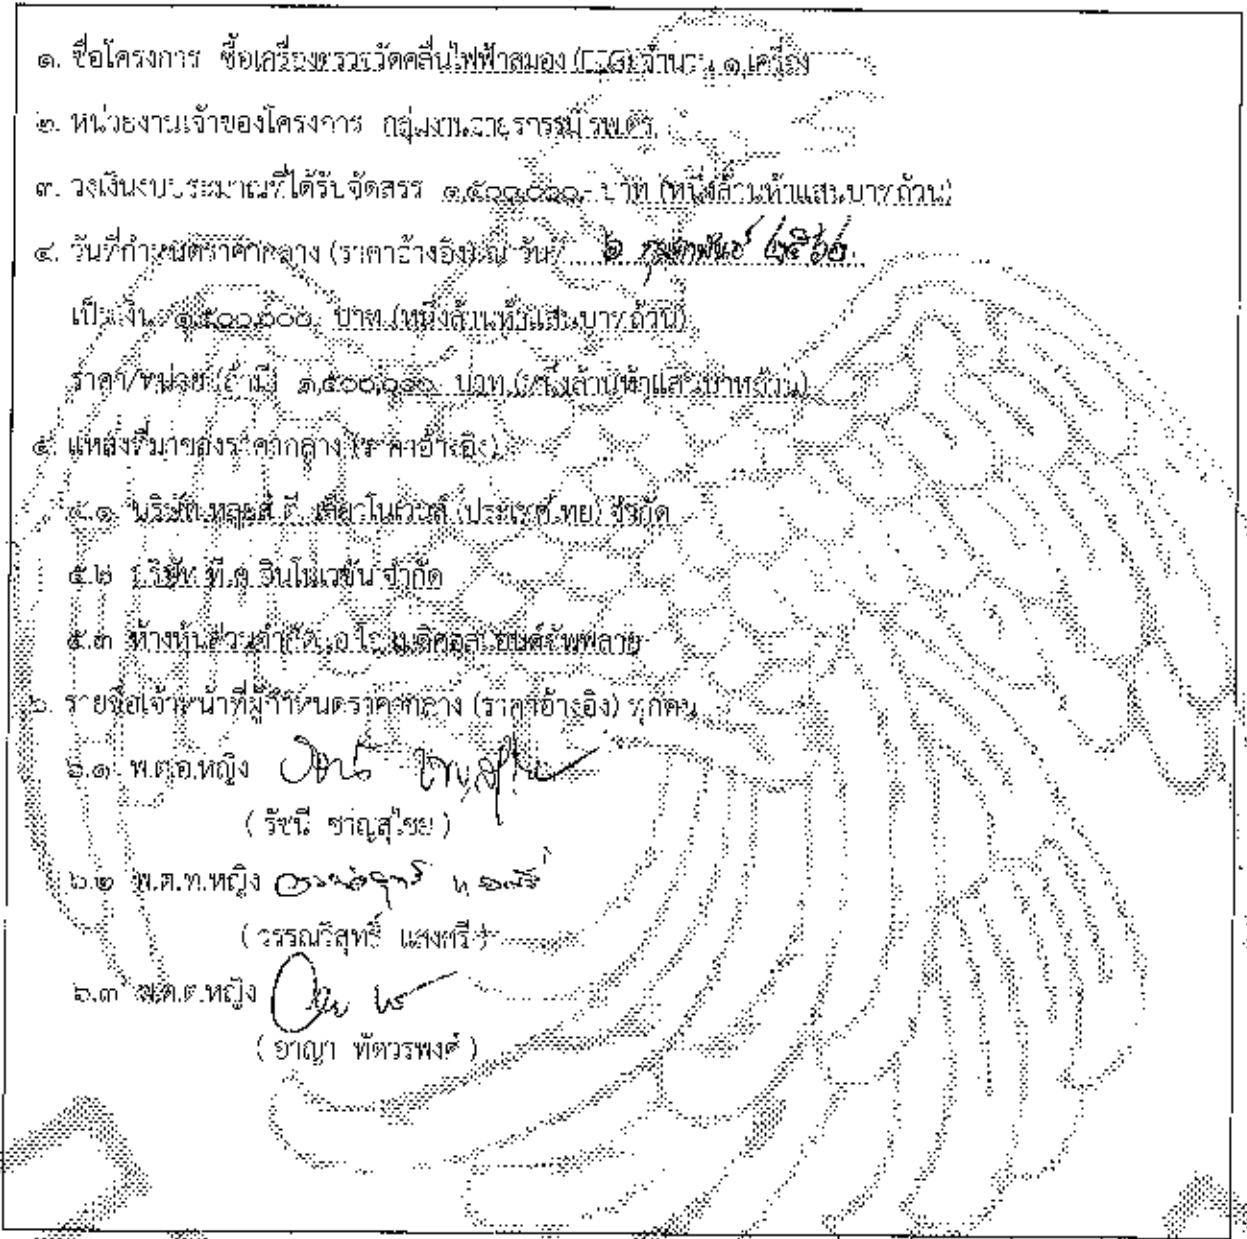 ๑. ชื่อโครงการ ซื้อเครื่องตรวจวัดคลื่นไฟฟ้าสมอง (EEG) จำนวน ๑ เครื่อง
๒. หน่วยงานเจ้าของโครงการ กลุ่มงานอายุรกรรม รพ.ตร.
๓. วงเงินงบประมาณที่ได้รับจัดสรร ๑,๕๐๐,๐๐๐.- บาท (หนึ่งล้านห้าแสนบาทถ้วน)
๔. วันที่กำหนดราคากลาง (ราคาอ้างอิง) ณ วันที่ ๖ กุมภาพันธ์ ๒๕๖๒
เป็นเงิน ๑,๕๐๐,๐๐๐.- บาท (หนึ่งล้านห้าแสนบาทถ้วน)
ราคา/หน่วย (ถ้ามี) ๑,๕๐๐,๐๐๐.- บาท (หนึ่งล้านห้าแสนบาทถ้วน)
๕. แหล่งที่มาของราคากลาง (ราคาอ้างอิง)
๕.๑ บริษัท (ประเทศไทย) จำกัด
๕.๒ บริษัท อินโนเวชั่น จำกัด
๕.๓ ห้างหุ้นส่วนจำกัด เมดิคอล แอนด์ซัพพลาย
๖. รายชื่อเจ้าหน้าที่ผู้กำหนดราคากลาง (ราคาอ้างอิง) ทุกคน
๖.๑ พ.ต.อ.หญิง
( รัชนี ชาญสุไชย )
๖.๒ พ.ต.ท.หญิง
( วรรณวิสุทธิ์ แสงศรี )
๖.๓ พ.ต.ต.หญิง
( อาญา พัตวรพงศ์ )